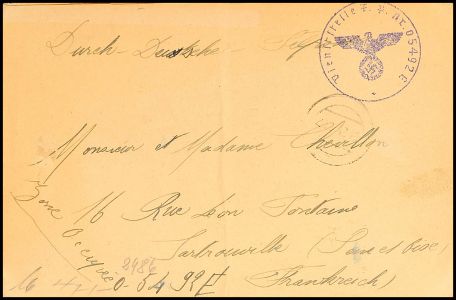 Durch-Deutsche-
Dienststelle F.P. Nr. 05492 E
Monsieur et Madame Chevillon
16 Rue Léon Fontaine
Sartrouville (Seine et Oise)
Frankreich)
Zone Occupée
8986
05492E